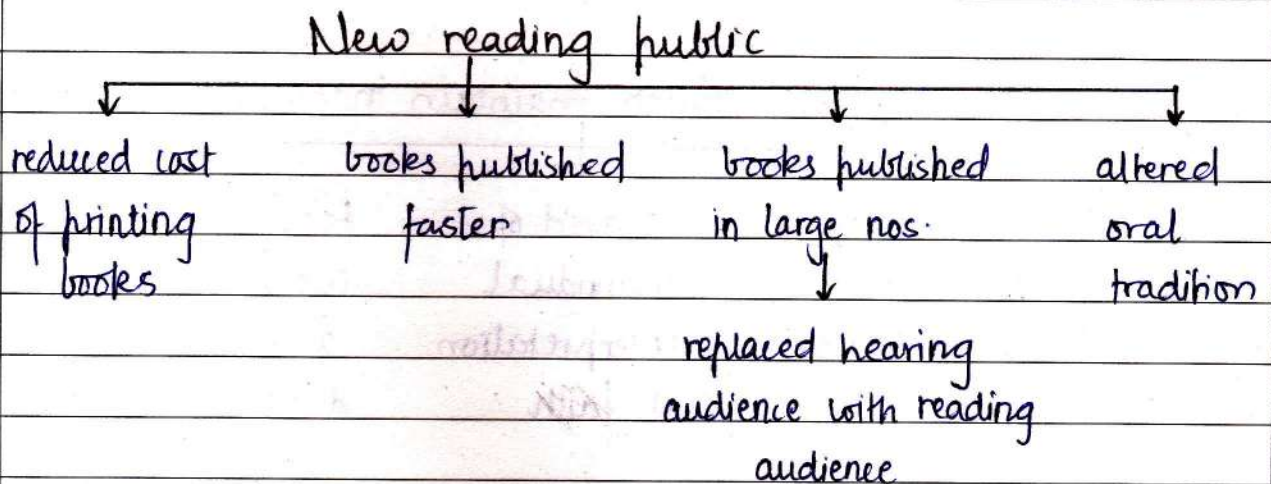 New reading public
reduced cost
of printing
books
books published
faster
books published
in large nos.
replaced hearing
audience with reading
audience
altered
oral
tradition